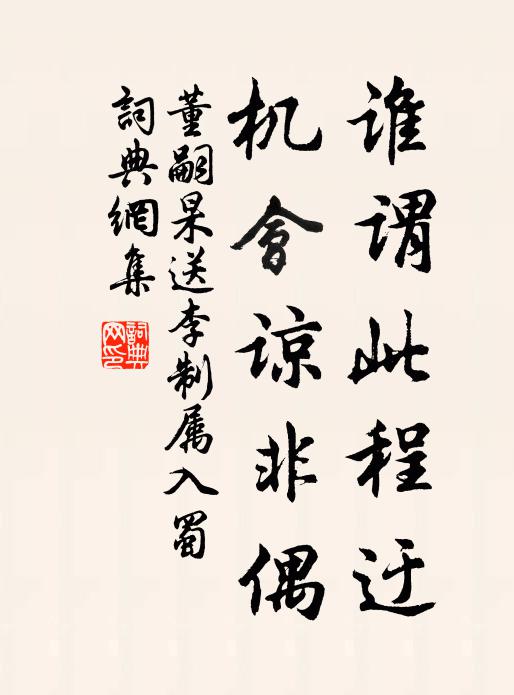 谁谓此程迂
机会谅非偶
董嗣杲送李制属入蜀
詞典網集
詞典网印